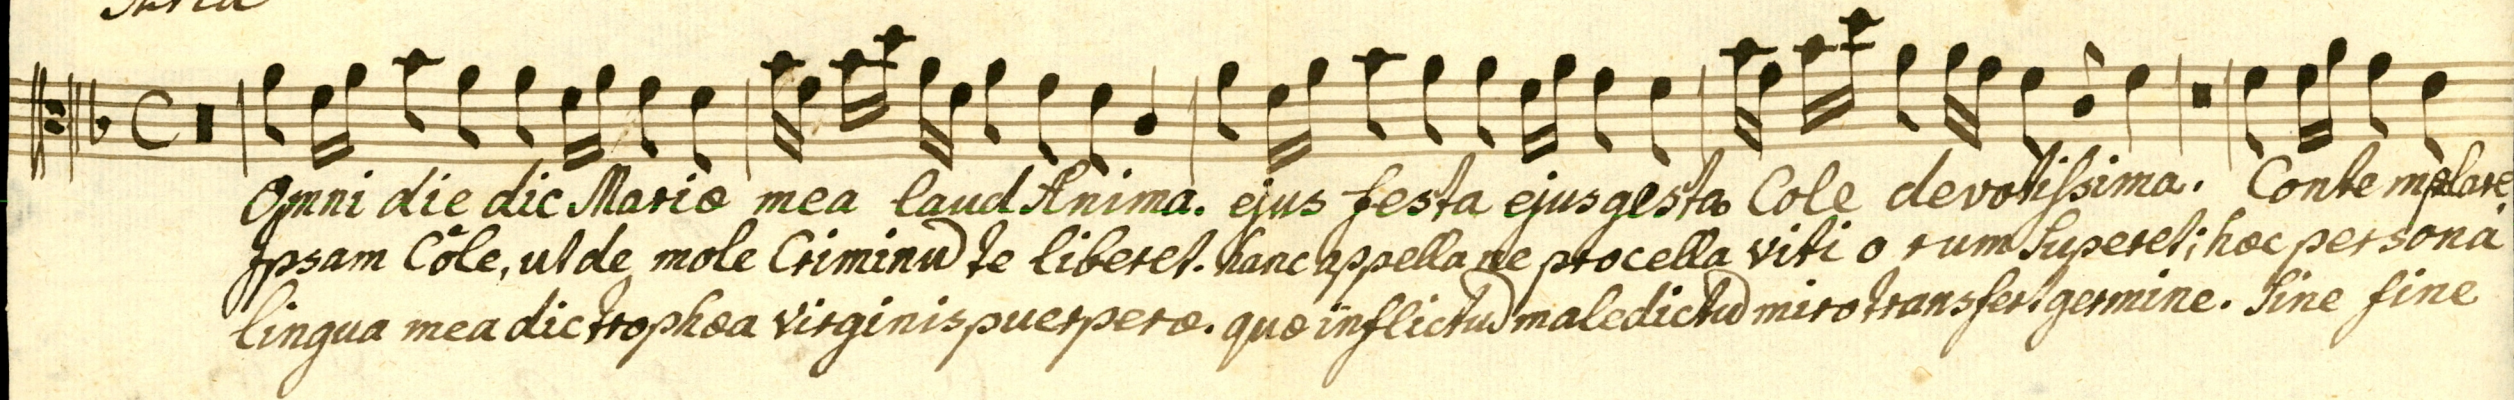 Omni die dic Mariæ mea laud Anima. ejus festa ejus gesta Cole devotissima. Contemplare
Ipsam Cole, ut de mole Criminũ te liberet. hanc appella ne procella vitiorum superet; hæc persona
lingua mea dic trophæa virginis puerperæ. quæ inflictũ maledictũ miro transfert germine. sine fine